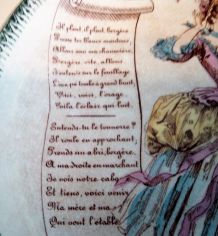 Il pleut, il pleut bergère
Presse tes blancs moutons,
Allons sous ma chaumière,
Bergère, vite, allons.
J'entends sur le feuillage
L'eau qui tombe à grand bruit,
Voici, voici, l'orage,
Voilà l'éclair qui luit.
Entends-tu le tonnerre?
Il roule en approchant,
Prends un abri, bergère,
A ma droite en marchant
Je vois notre caba
Et tiens, voici venir
Ma mère et ma
Qui vont l'étable